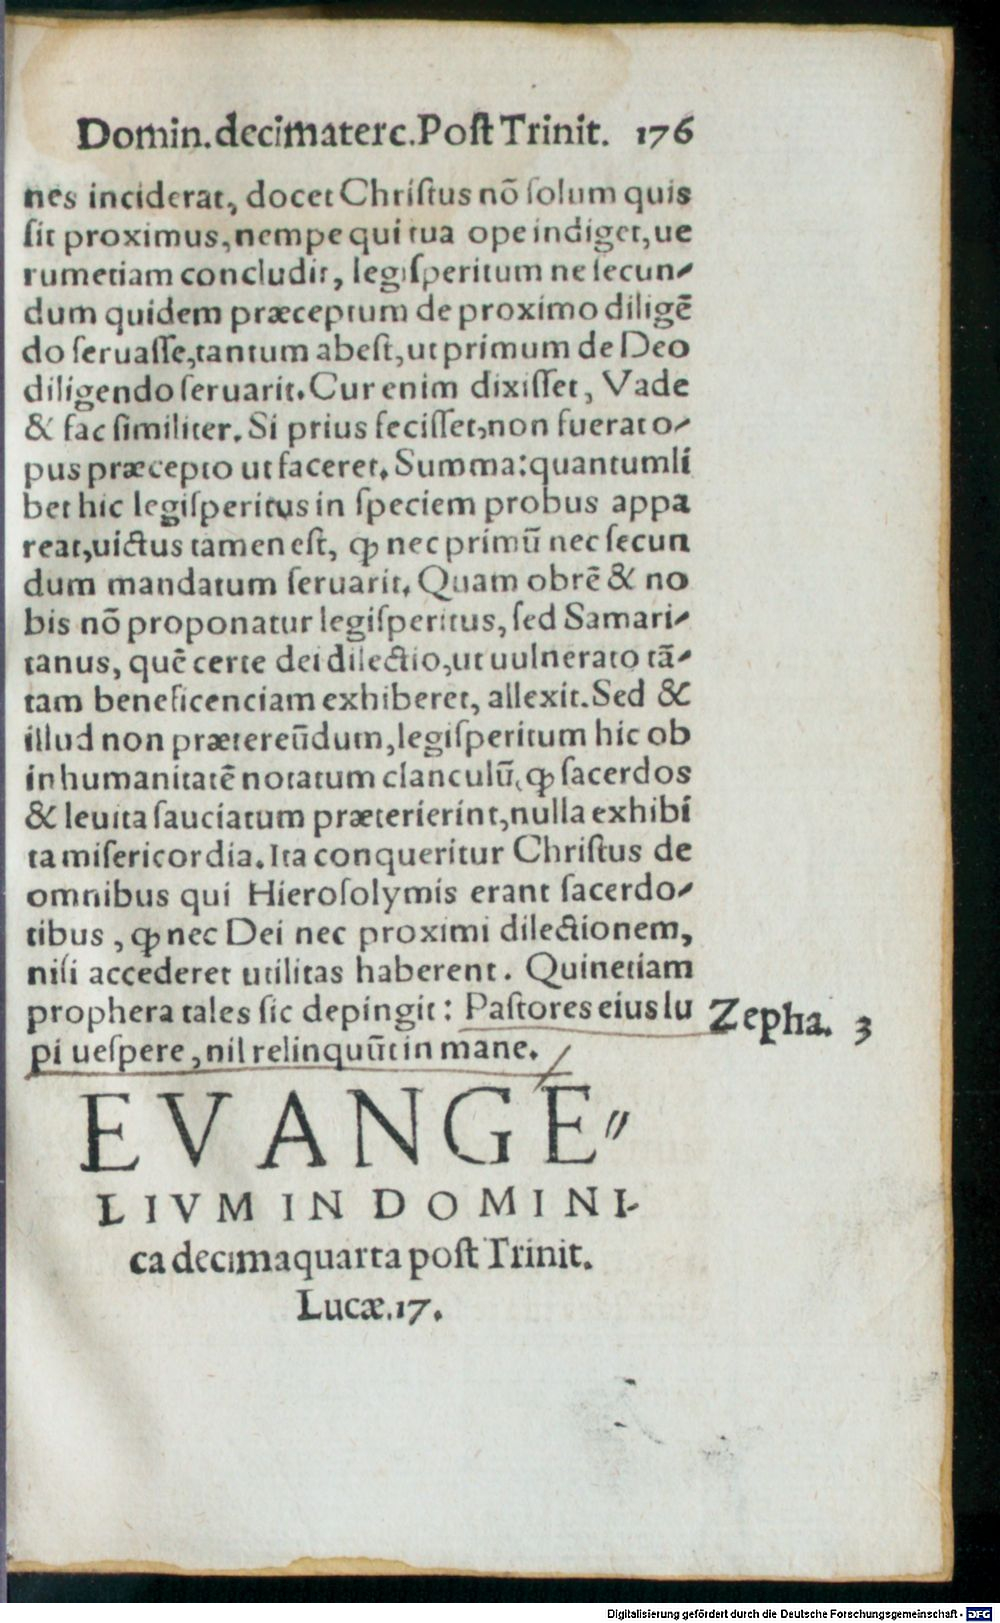 Domin.decimaterc.Poſt Trinit. 176
nes inciderat, docet Chriſtus nõ ſolum quis
ſit proximus, nempe qui tua ope indiget, ue
rumetiam concludit, legiſperitum ne ſecun-
dum quidem præceptum de proximo diligẽ
do ſeruaſſe, tantum abeſt, ut primum de Deo
diligendo ſeruarit. Cur enim dixiſſet, Vade
& fac ſimiliter. Si prius feciſſet, non fuerat o-
pus præcepto ut faceret. Summa: quantumli
bet hic legiſperitus in ſpeciem probus appa
reat, uictus tamen eſt, ꝙ nec primũ nec ſecun
dum mandatum ſeruarit. Quam obrẽ & no
bis nõ proponatur legiſperitus, ſed Samari-
tanus, quẽ certe dei dilectio, ut uulnerato tã-
tam beneficenciam exhiberet, allexit. Sed &
illud non prætereũdum, legiſperitum hic ob
inhumanitatẽ notatum clanculũ, ꝙ ſacerdos
& leuita ſauciatum præterierint, nulla exhibi
ta miſericordia. Ita conqueritur Chriſtus de
omnibus qui Hieroſolymis erant ſacerdo-
tibus, ꝙ nec Dei nec proximi dilectionem,
niſi accederet utilitas haberent. Quinetiam
propheta tales ſic depingit: Paſtores eius lu
Zepha. 3
pi ueſpere, nil relinquũt in mane.
EVANGE-
LIVM IN DOMINI-
ca decimaquarta poſt Trinit.
Lucæ.17.
Digitalisierung gefördert durch die Deutsche Forschungsgemeinschaft - DFG